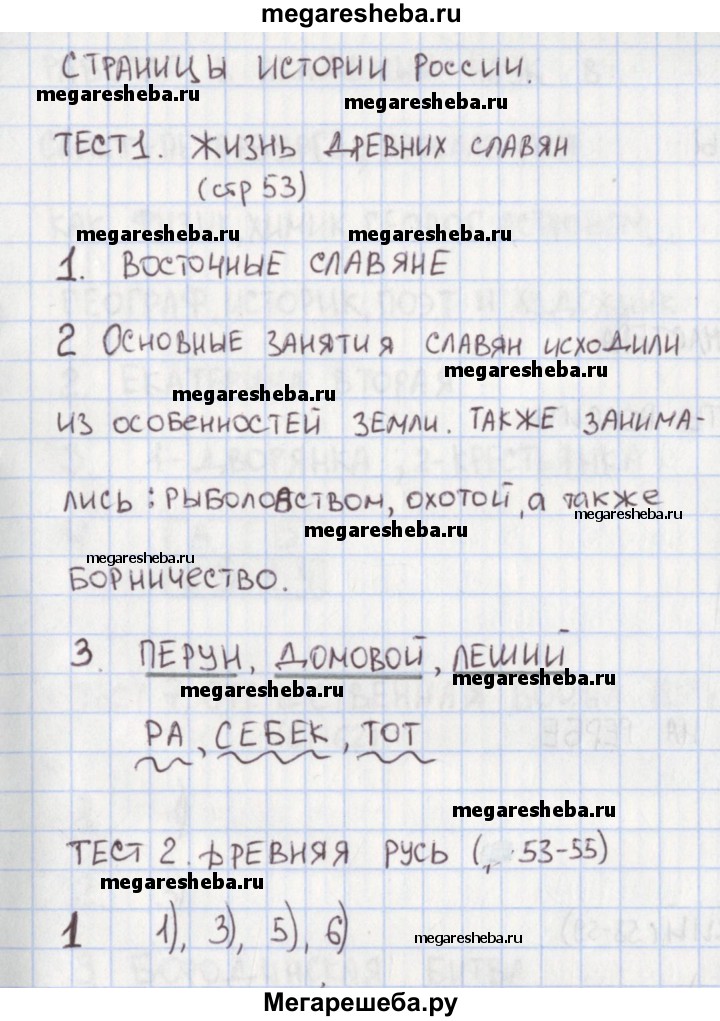 megaresheba.ru
СТРАНИЦЫ ИСТОРИИ РОССИИ.
megaresheba.ru megaresheba.ru
ТЕСТ1. ЖИЗНЬ ДРЕВНИХ СЛАВЯН
(стр 53)
megaresheba.ru megaresheba.ru
1. ВОСТОЧНЫЕ СЛАВЯНЕ
2 ОСНОВНЫЕ ЗАНЯТИЯ СЛАВЯН ИСХОДИЛИ
megaresheba.ru megaresheba.ru
ИЗ ОСОБЕННОСТЕЙ ЗЕМЛИ. ТАКЖЕ ЗАНИМА-
ЛИСЬ: РЫБОЛОВСТВОМ, ОХОТОЙ, а также
megaresheba.ru megaresheba.ru
megaresheba.ru
БОРНИЧЕСТВО.
3. ПЕРУН, ДОМОВОЙ, ЛЕШИЙ
megaresheba.ru megaresheba.ru
РА, СЕБЕК, ТОТ
megaresheba.ru
ТЕСТ 2. ДРЕВНЯЯ РУСЬ (, 53-55)
megaresheba.ru
1 1), 3), 5), 6)
megaresheba.ru
Мегарешеба.ру